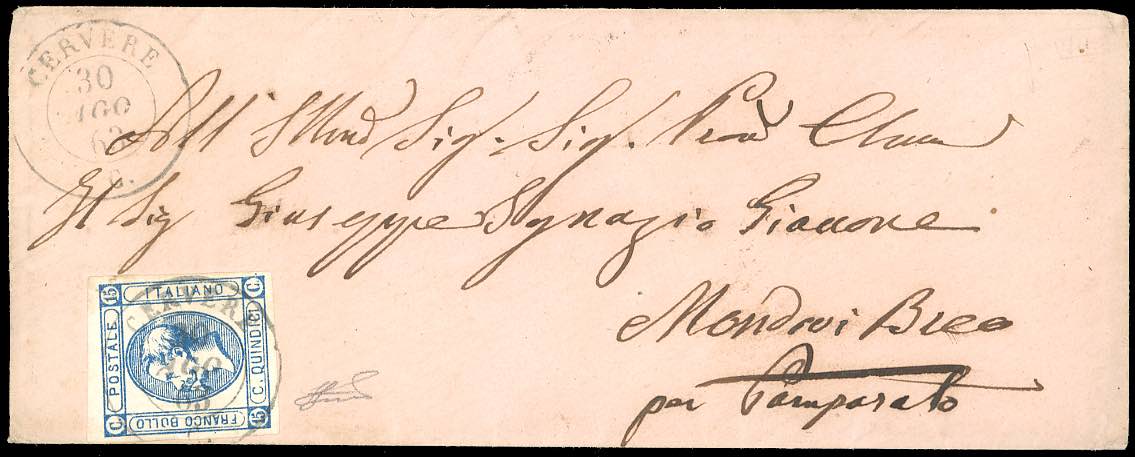 CERVERE
30
AGO
63
C.
All' Illmo Sig. Sig. Prone Clmo
Il Sig Giuseppe Ignazio Giauone
Mondovi Breo
per Pamparato
ITALIANO
POSTALE
C. QUINDICI
FRANCO BOLLO
15
C
C
15
CERVERE
AGO
63